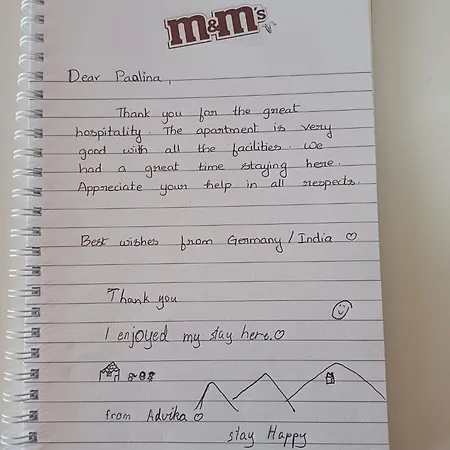 m&m's
Dear Paalina,
Thank you for the great
hospitality. The apartment is very
good with all the facilities. We
had a great time staying here.
Appreciate your help in all respects.
Best wishes from Germany / India ♡
Thank you
I enjoyed my stay here.♡
from Advika ♡
stay Happy